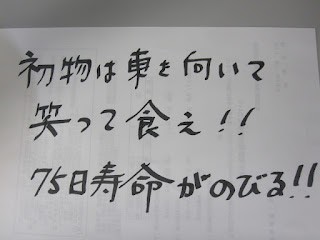 初物は東を向いて
笑って食え!!
75日寿命がのびる!!